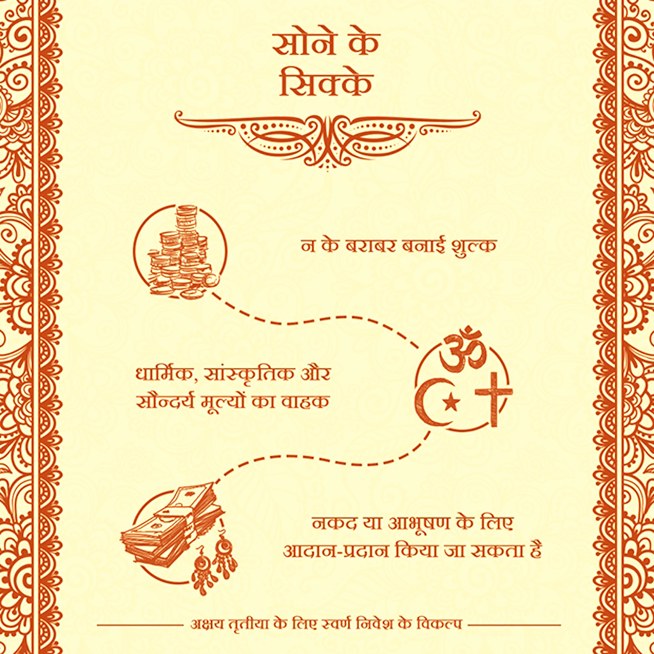 सोने के
सिक्के
न के बराबर बनाई शुल्क
धार्मिक, सांस्कृतिक और
सौन्दर्य मूल्यों का वाहक
नकद या आभूषण के लिए
आदान-प्रदान किया जा सकता है
अक्षय तृतीया के लिए स्वर्ण निवेश के विकल्प